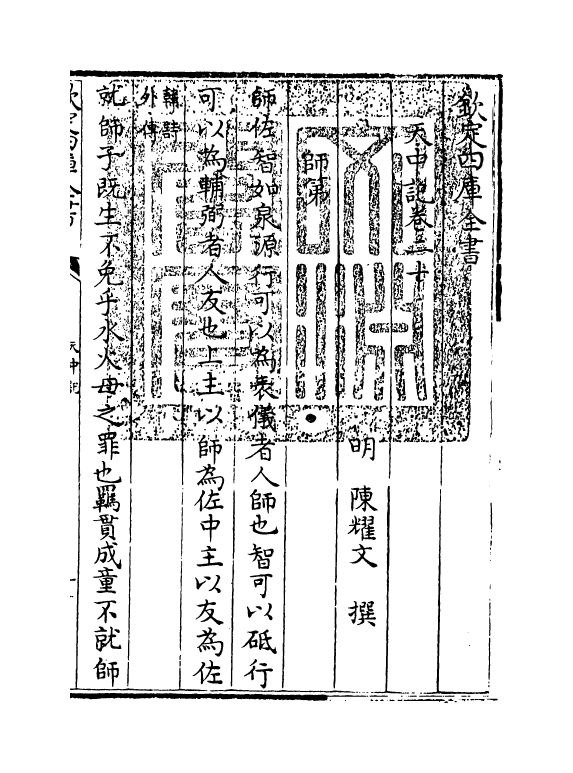 欽定四庫全書
天中記卷二十
明 陳耀文 撰
師第
師佐智如泉源行可以為表儀者人師也智可以砥行
可以為輔弼者人友也上主以師為佐中主以友為佐
韓詩
外傳
就師子既生不免乎水火母之罪也羈貫成童不就師